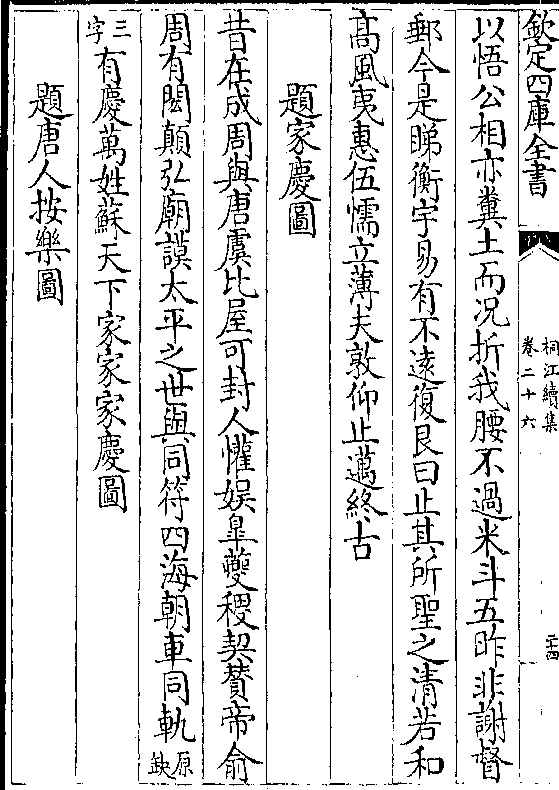 欽定四庫全書
桐江續集
卷二十六
二十四
以悟公相亦糞土而况折我腰不過米斗五昨非謝督
郵今是睇衡宇易有不遠復艮曰止其所聖之清若和
高風夷惠伍懦立薄夫敦仰止邁終古
題家慶圖
昔在成周與唐虞比屋可封人懽娱臯夔稷契賛帝俞
周有閎顛弘廟謨太平之世與同符四海朝車同軌原缺
三字有慶萬姓蘇天下家家家慶圖
題唐人按樂圖